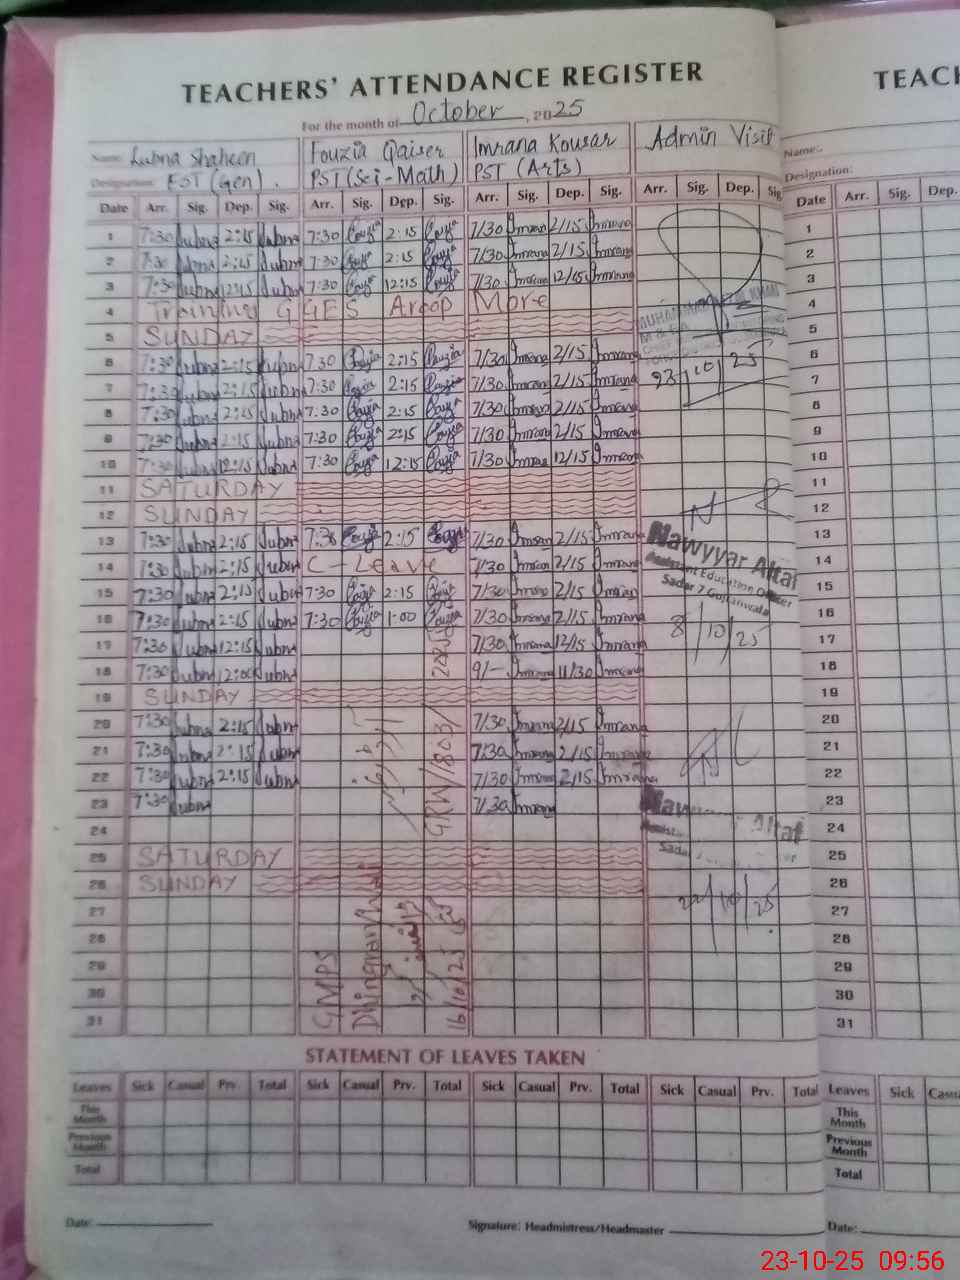 TEACHERS' ATTENDANCE REGISTER
For the month of October, 2025
Name: Lubna Shaheen Fouzia Qaiser Imrana Kousar Admin Visit
Designation: EST (Gen). PST (Sci-Math) PST (Arts)
Date Arr. Sig. Dep. Sig. Arr. Sig. Dep. Sig. Arr. Sig. Dep. Sig. Arr. Sig. Dep. Sig
1 7:30 Lubna 2:15 Lubna 7:30 2:15 7/30 Imrana 2/15 Imrana
2 7:30 Lubna 2:15 Lubna 7:30 2:15 7/30 Imrana 2/15 Imrana
3 7:30 Lubna 12:15 Lubna 7:30 12:15 7/30 Imrana 12/15 Imrana
4 Training GGES Aroop More
5 SUNDAY
6 7:30 Lubna 2:15 Lubna 7:30 2:15 7/30 Imrana 2/15 Imrana
7 7:30 Lubna 2:15 Lubna 7:30 2:15 7/30 Imrana 2/15 Imrana
8 7:30 Lubna 2:15 Lubna 7:30 2:15 7/30 Imrana 2/15 Imrana
9 7:30 Lubna 2:15 Lubna 7:30 2:15 7/30 Imrana 2/15 Imrana
10 7:30 Lubna 12:15 Lubna 7:30 12:15 7/30 Imrana 12/15 Imrana
11 SATURDAY
12 SUNDAY
13 7:30 Lubna 2:15 Lubna 2:15 7/30 Imrana 2/15 Imrana
14 7:30 Lubna 2:15 Lubna C-Leave 7/30 Imrana 2/15 Imrana
15 7:30 Lubna 2:15 Lubna 7:30 2:15 7/30 Imrana 2/15 Imrana
16 7:30 Lubna 2:15 Lubna 7:30 1:00 7/30 Imrana 2/15 Imrana
17 7:30 Lubna 12:15 Lubna 7/30 Imrana 12/15 Imrana
18 7:30 Lubna 12:00 Lubna 9/- Imrana 11/30 Imrana
19 SUNDAY
20 7:30 Lubna 2:15 Lubna 7/30 Imrana 2/15 Imrana
21 7:30 Lubna 2:15 Lubna 7/30 Imrana 2/15 Imrana
22 7:30 Lubna 2:15 Lubna 7/30 Imrana 2/15 Imrana
23 7:30 Lubna 7/30 Imrana
24
25 SATURDAY
26 SUNDAY
27
28
29
30
31
GMPS
GRW/1803/
16/10/25
MUHAMMAD
10/25
Nawyyar Altaf
Assistant Education Officer
Sadar 7 Gujranwala
8/10/25
Altaf
Sadar
22/10/25
STATEMENT OF LEAVES TAKEN
Leaves Sick Casual Prv. Total Sick Casual Prv. Total Sick Casual Prv. Total Sick Casual Prv. Total
This Month
Previous Month
Total
Date:
Signature: Headmistress/Headmaster
TEACH
Name:
Designation:
Date Arr. Sig. Dep.
1
2
3
4
5
6
7
8
9
10
11
12
13
14
15
16
17
18
19
20
21
22
23
24
25
26
27
28
29
30
31
Leaves Sick Casu
This Month
Previous Month
Total
Date:
23-10-25 09:56